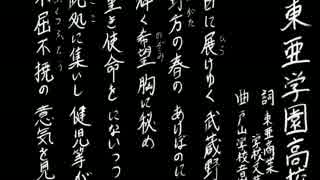 東亜学園高校
詞 東亜商業学校文芸
曲 戸山学校音楽
日に展けゆく 武蔵野
野方の春の あけぼのに
輝く希望 胸に秘め
重き使命を にないつつ
此処に集いし 健児等が
不屈不撓の 意気を見